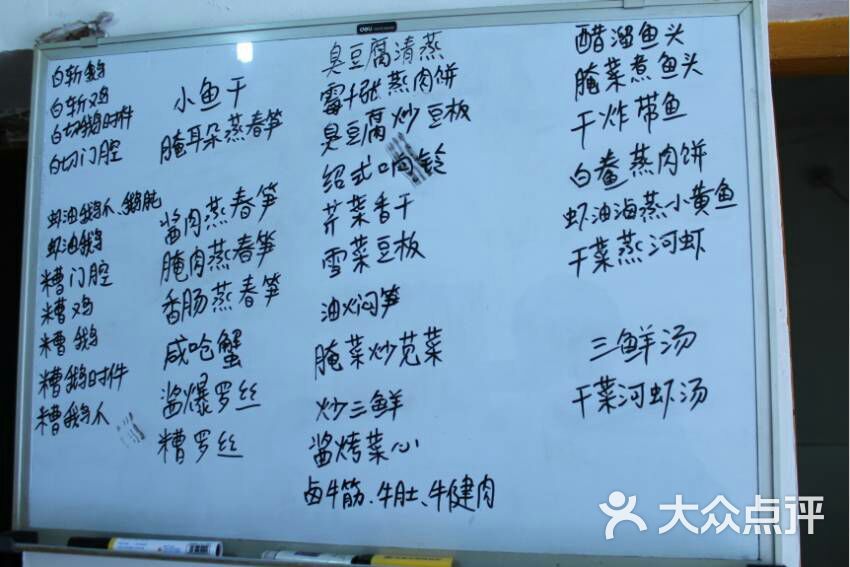 deli
白斩鹅
白斩鸡
白切鹅时件
白切门腔
虾油鹅爪、鹅肫
虾油鹅
糟门腔
糟鸡
糟鹅
糟鹅时件
糟鹅爪
小鱼干
腌耳朵蒸春笋
酱肉蒸春笋
腌肉蒸春笋
香肠蒸春笋
咸呛蟹
酱爆罗丝
糟罗丝
臭豆腐清蒸
霉千张蒸肉饼
臭豆腐炒豆板
绍式响铃
芹菜香干
雪菜豆板
油焖笋
腌菜炒苋菜
炒三鲜
酱烤菜心
卤牛筋、牛肚、牛健肉
醋溜鱼头
腌菜煮鱼头
干炸带鱼
白鲞蒸肉饼
虾油海蒸小黄鱼
干菜蒸河虾
三鲜汤
干菜河虾汤
大众点评